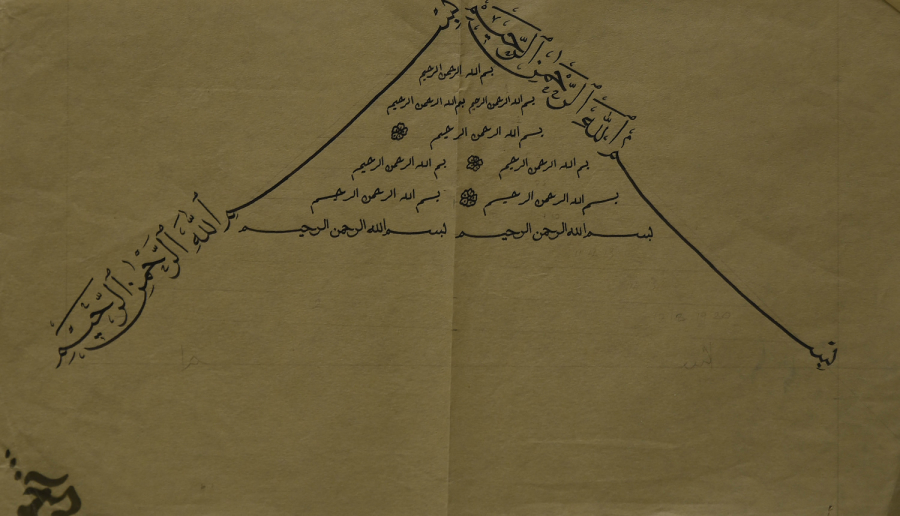 بسم الله الرحمن الرحيم
بسم الله الرحمن الرحيم
بسم الله الرحمن الرحيم
بسم الله الرحمن الرحيم بسم الله الرحمن الرحيم
بسم الله الرحمن الرحيم
بسم الله الرحمن الرحيم بسم الله الرحمن الرحيم
بسم الله الرحمن الرحيم بسم الله الرحمن الرحيم
بسم الله الرحمن الرحيم بسم الله الرحمن الرحيم